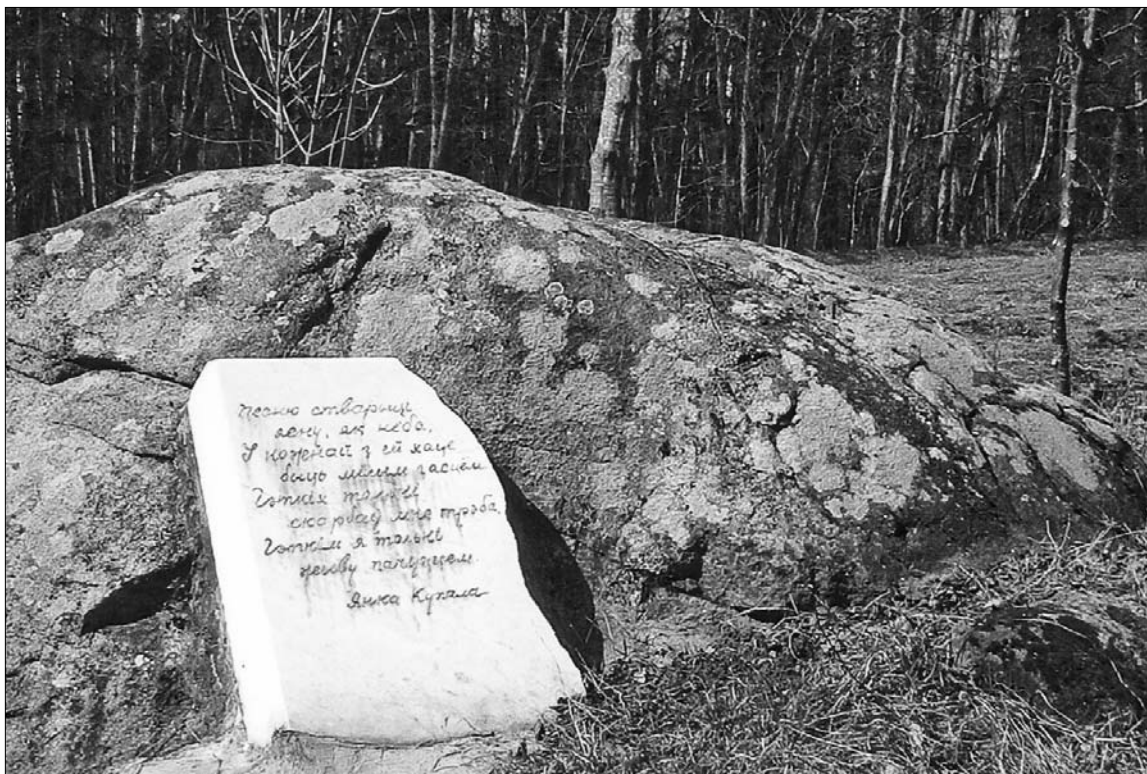 Песню стварыць
ясну, як неба,
У кожнай з ёй хаце
быць мілым госцем
Гэткіх толькі
скарбаў мне трэба,
Гэткім я толькі
жыву пачуццем.
Янка Купала